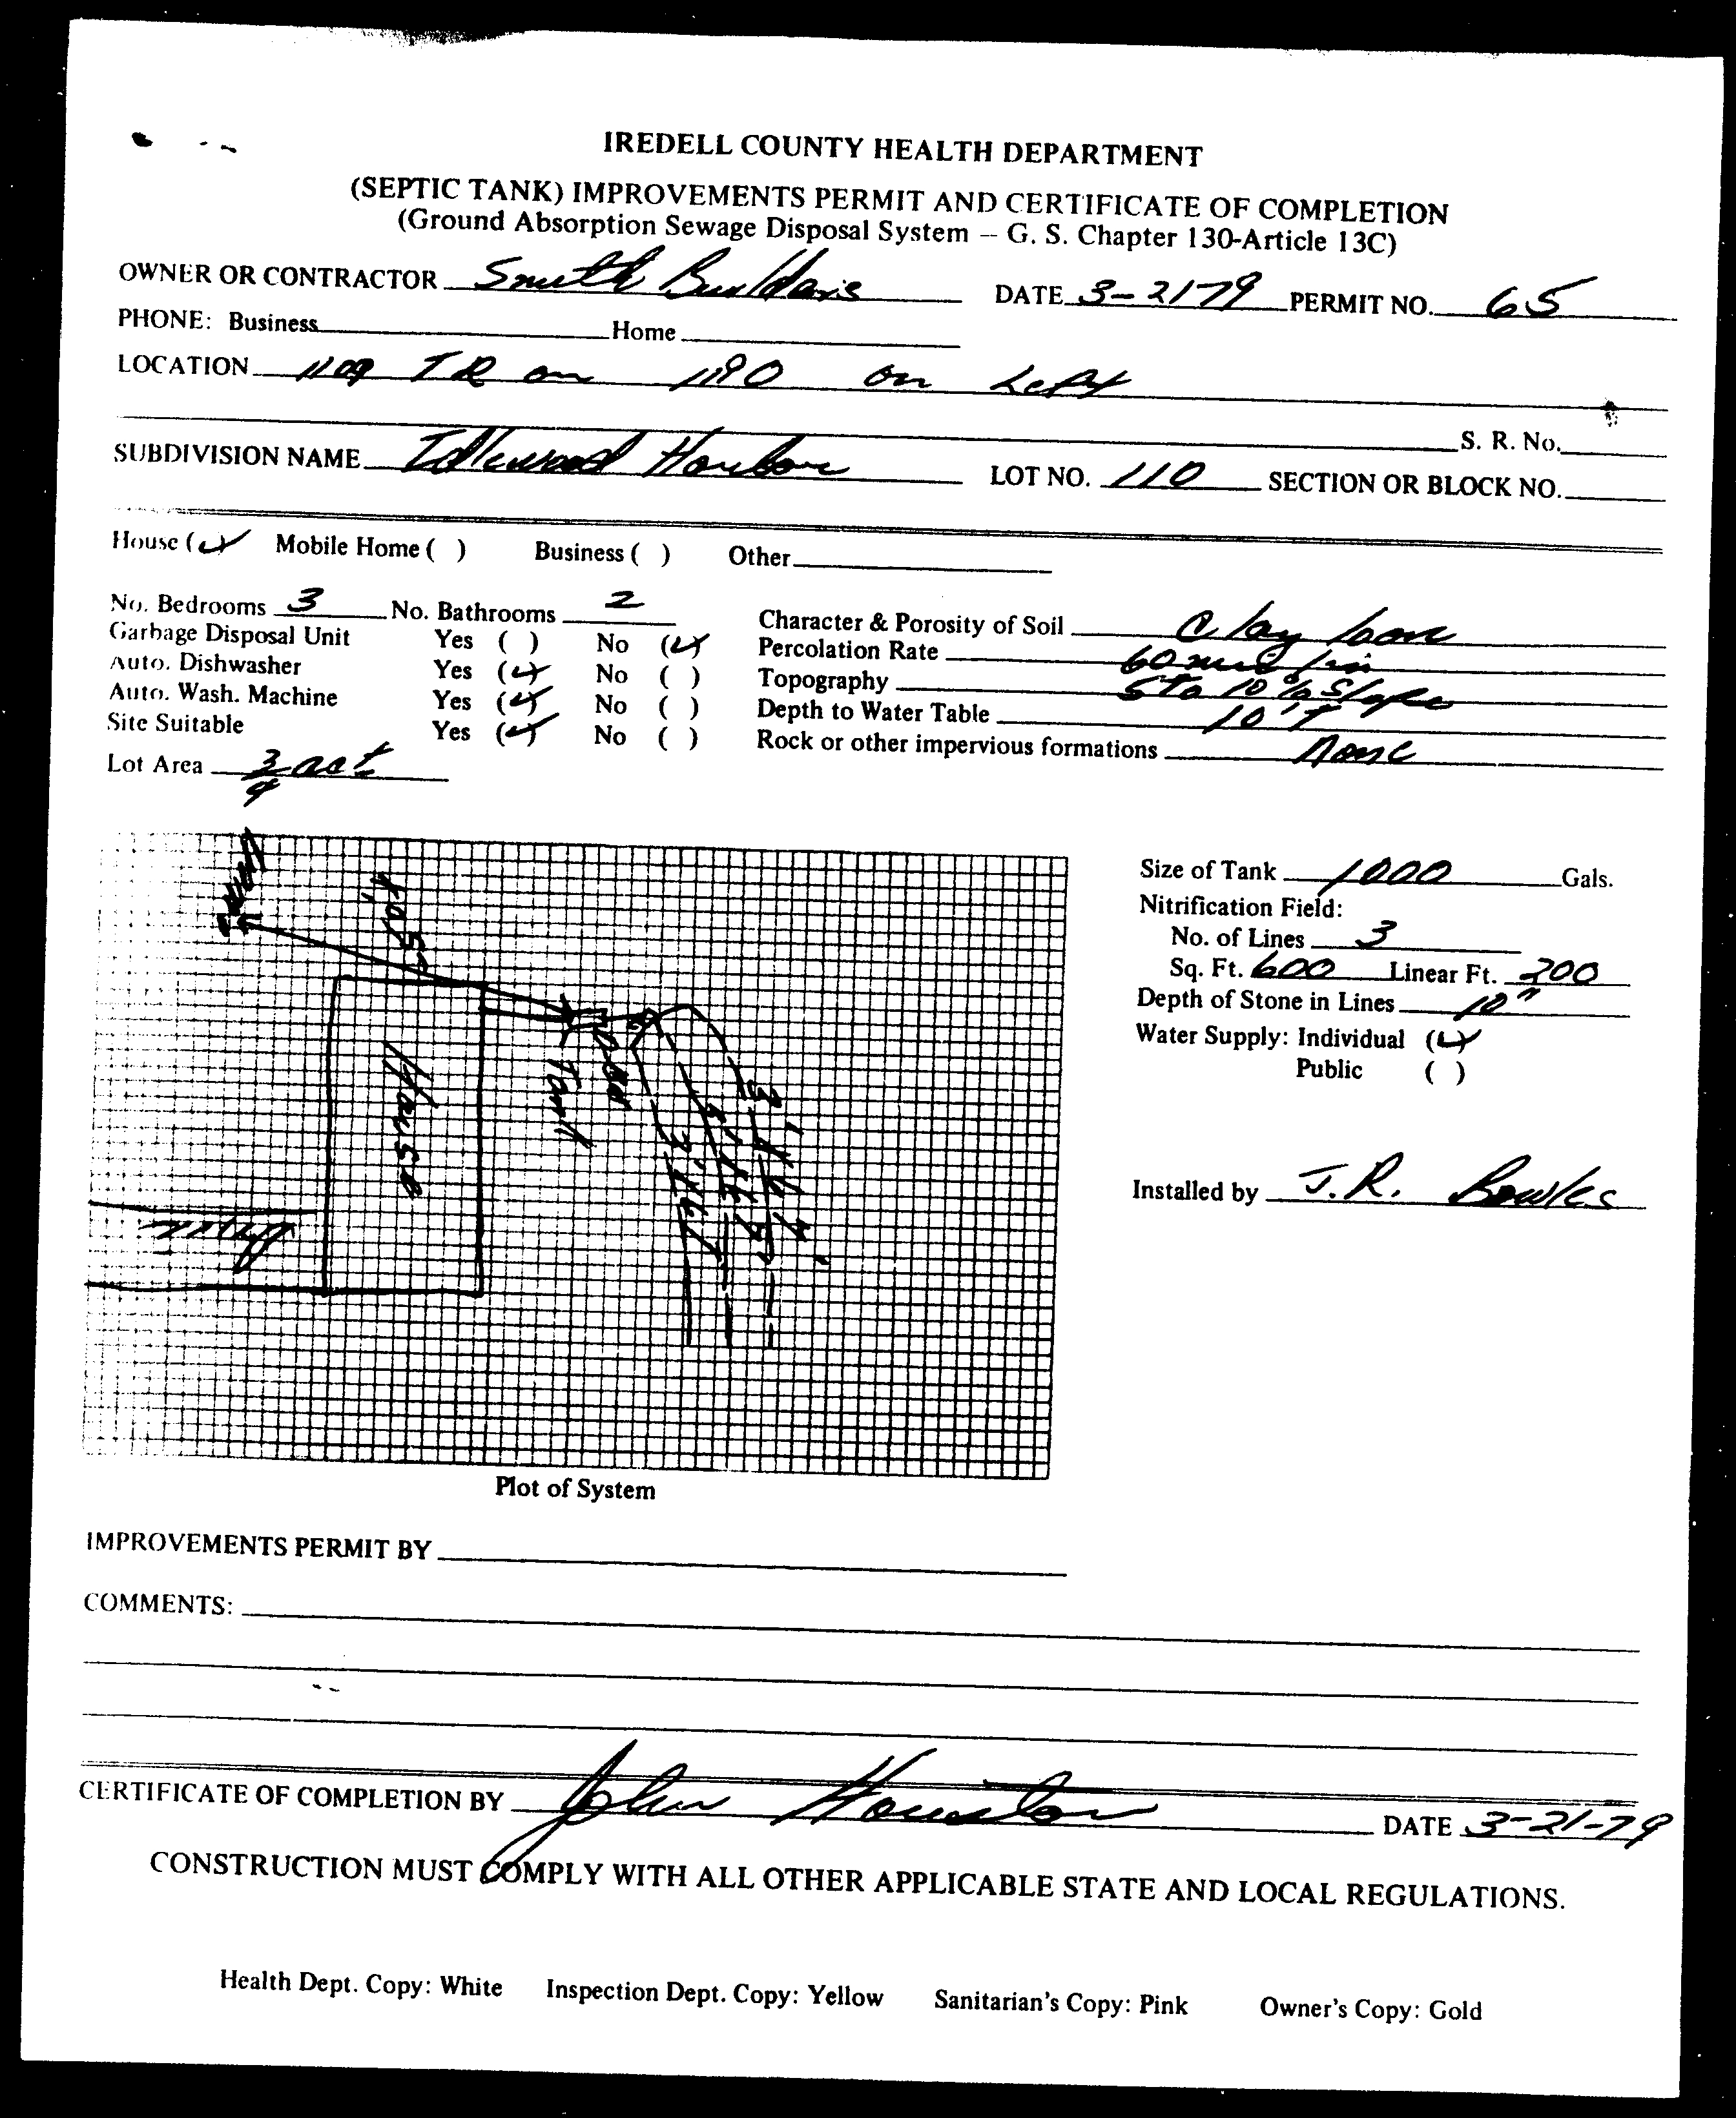 IREDELL COUNTY HEALTH DEPARTMENT
(SEPTIC TANK) IMPROVEMENTS PERMIT AND CERTIFICATE OF COMPLETION
(Ground Absorption Sewage Disposal System — G. S. Chapter 130-Article 13C)
OWNER OR CONTRACTOR Smith Builders DATE 3-2179 PERMIT NO. 65
PHONE: Business Home
LOCATION 1109 TR on 1190 on Left
S. R. No.
SUBDIVISION NAME Idlewood Harbor LOT NO. 110 SECTION OR BLOCK NO.
House (✓) Mobile Home ( ) Business ( ) Other
No. Bedrooms 3 No. Bathrooms 2 Character & Porosity of Soil Clay loam
Garbage Disposal Unit Yes ( ) No (✓) Percolation Rate 60 min/in
Auto. Dishwasher Yes (✓) No ( ) Topography 5 to 10% Slope
Auto. Wash. Machine Yes (✓) No ( ) Depth to Water Table 10'+
Site Suitable Yes (✓) No ( ) Rock or other impervious formations None
Lot Area 3/4 ac±
Size of Tank 1000 Gals.
Nitrification Field:
No. of Lines 3
Sq. Ft. 600 Linear Ft. 200
Depth of Stone in Lines 12"
Water Supply: Individual (✓)
Public ( )
House
Tank
3'x67'
3'x67'
3'x67'
Installed by J.R. Bowles
Plot of System
IMPROVEMENTS PERMIT BY
COMMENTS:
CERTIFICATE OF COMPLETION BY John Houston DATE 3-21-79
CONSTRUCTION MUST COMPLY WITH ALL OTHER APPLICABLE STATE AND LOCAL REGULATIONS.
Health Dept. Copy: White Inspection Dept. Copy: Yellow Sanitarian's Copy: Pink Owner's Copy: Gold